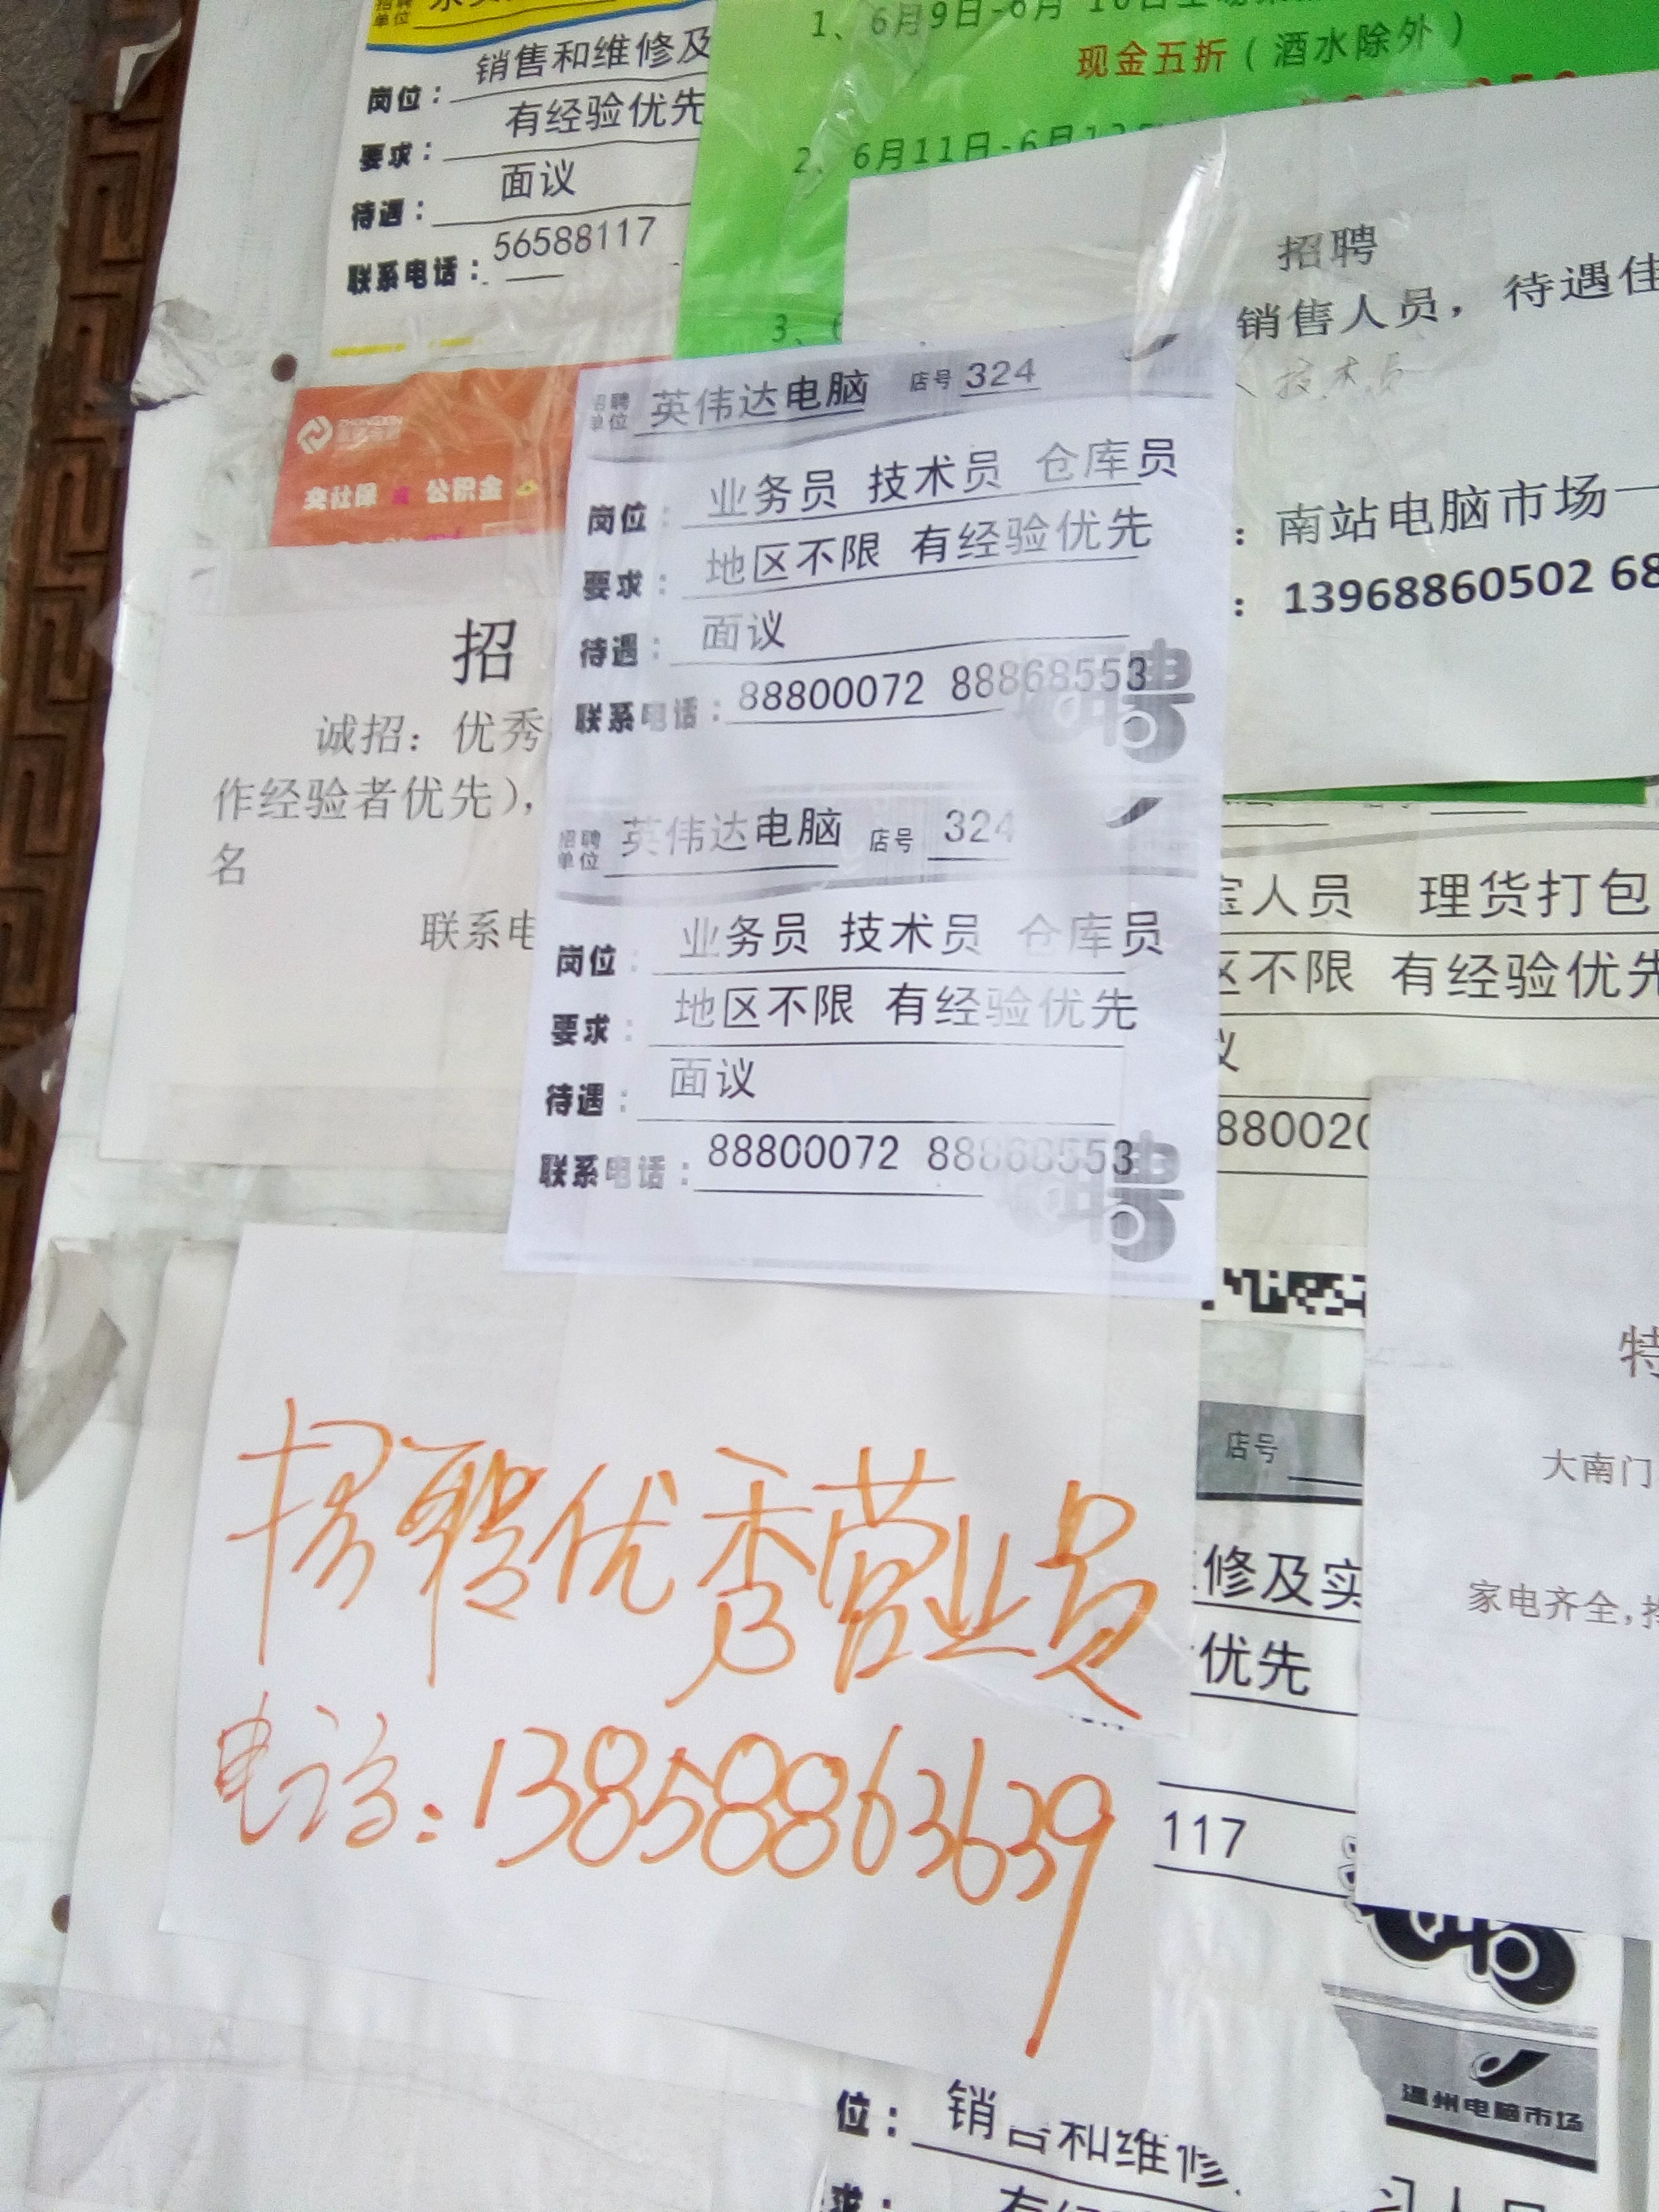 招聘
单位
销售和维修及
岗位：
有经验优先
要求：
面议
待遇：
56588117
联系电话：
现金五折（酒水除外）
2、6月11日-6月12
3、
招聘
销售人员，待遇佳
技术员
：南站电脑市场一
：13968860502 68
ZHONGXIN
交社保
公积金
招
诚招：优秀
作经验者优先），
名
联系电
招聘
单位
英伟达电脑 店号 324
岗位：业务员 技术员 仓库员
要求：地区不限 有经验优先
待遇：面议
联系电话：88800072 88868553
聘
招聘
单位
英伟达电脑 店号 324
岗位：业务员 技术员 仓库员
要求：地区不限 有经验优先
待遇：面议
联系电话：88800072 88868553
聘
宝人员 理货打包
区不限 有经验优先
议
880020
招聘优秀营业员
电话：13858863639
店号
修及实
优先
117
特
大南门
家电齐全，
温州电脑市场
位：销售和维修
求：